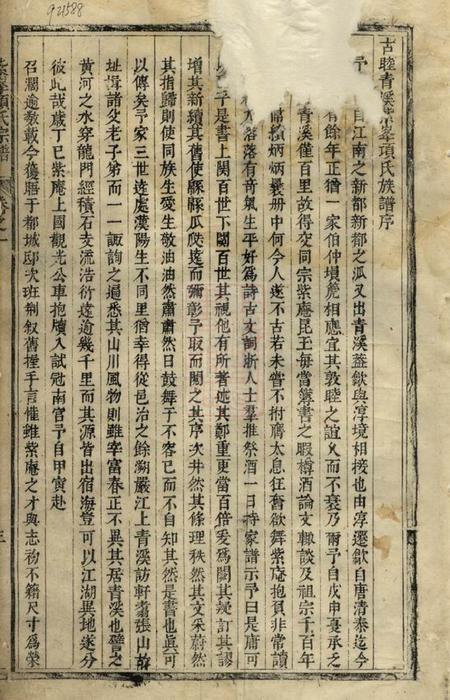 921588
古睦青溪紫峯項氏族譜序
予
自江南之新都新都之派又出青溪蓋歙與淳境相接也由淳遷歙自唐清泰迄今
有餘年正猶一家伯仲塤箎相應宜其敦睦之誼久而不衰乃爾予自戊申憂承之
青溪僅百里故得交同宗紫庵昆玉每當簿書之暇樽酒論文輒談及祖宗千百年
節績炳炳裴冊中何今人遂不古若未嘗不拊膺太息狂奮欲舞紫庵抱負非常讀
落落有奇氣生平好為詩古文詞浙人士羣推祭酒一日持家譜示予曰是庸可
乎是書上関百世下闢百世其視他有所著述其鄭重更當百倍爰為闢其疑訂其謬
增其新續其舊使緜緜瓜瓞遠而彌彰予取而閱之其序次井然其條理秩然其文采蔚然
其指歸則使同族生愛生敬油油然肅肅然日鼓舞于不容已而不自知其然是書也眞可
以傳矣予家三世遠處漢陽生不同里猶幸得從邑治之餘溯嚴江上青溪訪軒翥張山故
址揖諸父老子弟而一一諏詢之遍悉其山川風物則雖宰富春正不異其居青溪也譬之
黃河之水穿龍門經積石支流浩衍遠逾幾千里而其源皆出宿海豈可以江湖異地遂分
彼此哉歲丁巳紫庵上國觀光公車抱牘入試冠南宮予自甲寅赴
召濶逾數載今獲晤于都城邸次班荆叙舊握手言懽雖紫庵之才與志初不籍尺寸為榮
峯項氏宗譜
卷之一
三